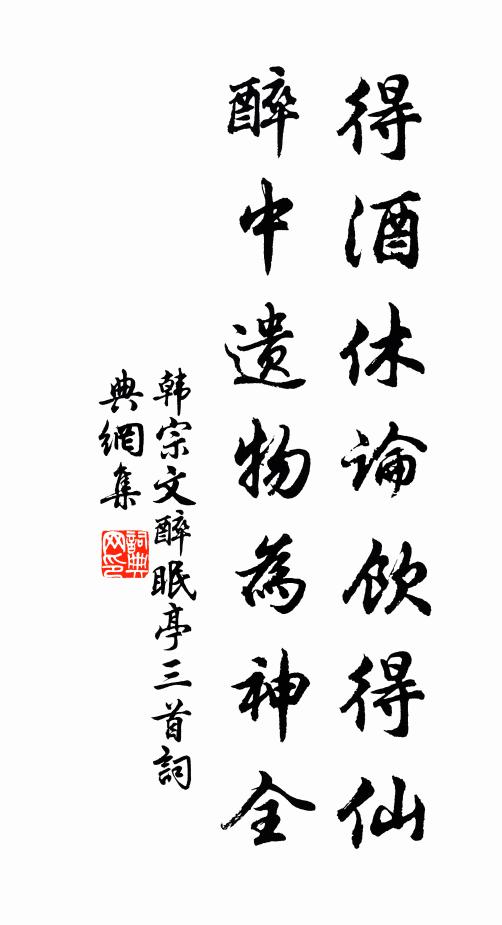 得酒休論飲得仙
醉中遗物為神全
韩宗文醉眠亭三首詞
典網集
詞典网印